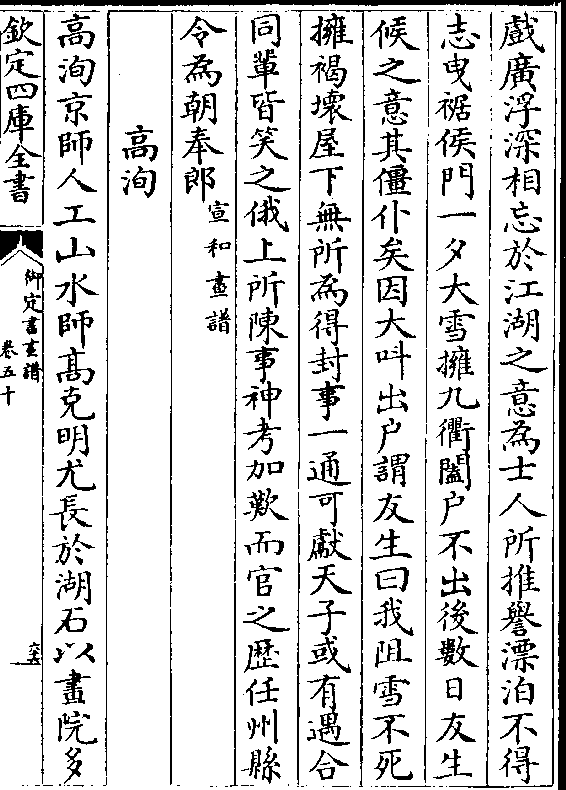 戲廣浮深相忘於江湖之意為士人所推譽漂泊不得
志曳裾侯門一夕大雪擁九衢闔户不出後數日友生
候之意其僵仆矣因大呌出户謂友生曰我阻雪不死
擁褐壞屋下無所為得封事一通可獻天子或有遇合
同輩皆笑之俄上所陳事神考加歎而官之歴任州縣
令為朝奉郎宣和畫譜
高洵
高洵京師人工山水師髙克明尤長於湖石以畫院多
欽定四庫全書
御定書畫譜
卷五十
六十